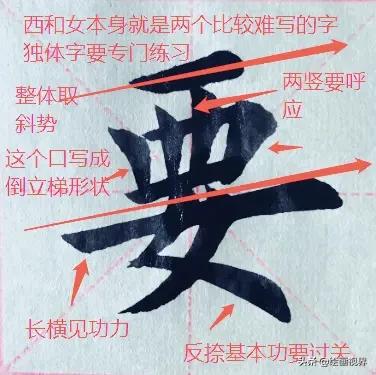 西和女本身就是两个比较难写的字
独体字要专门练习
整体取
斜势
两竖要呼
应
这个口写成
倒立梯形状
要
长横见功力
反捺基本功要过关
头条@绘画视界